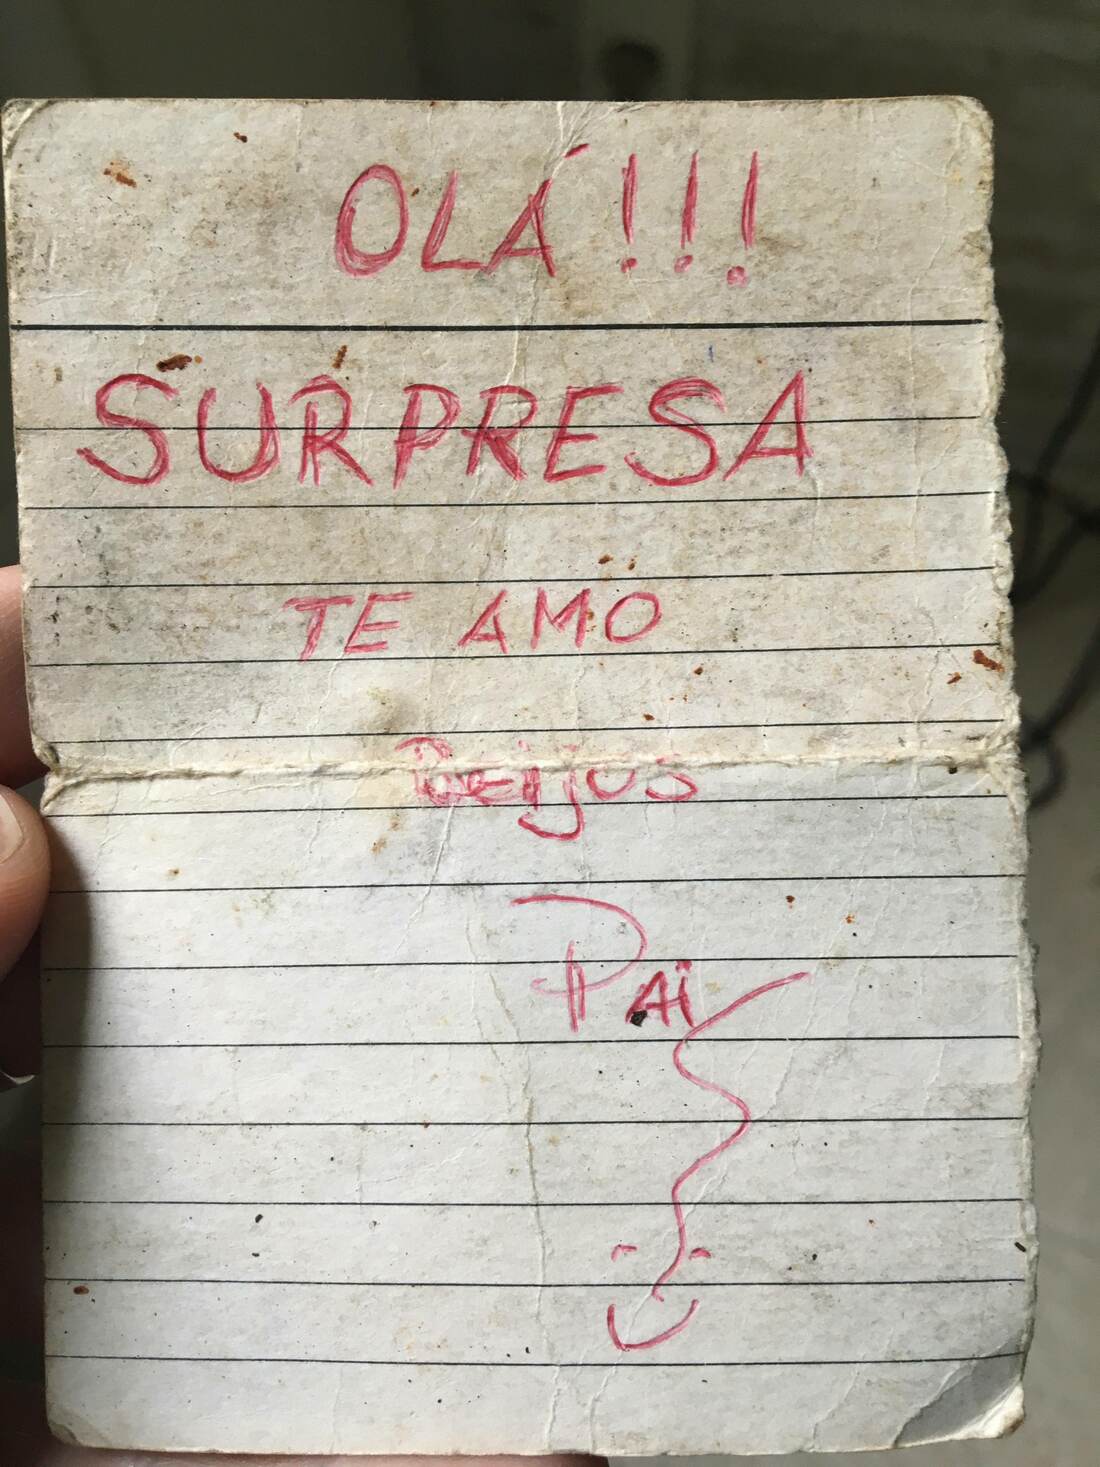 OLÁ!!!
SURPRESA
TE AMO
Beijos
PAi